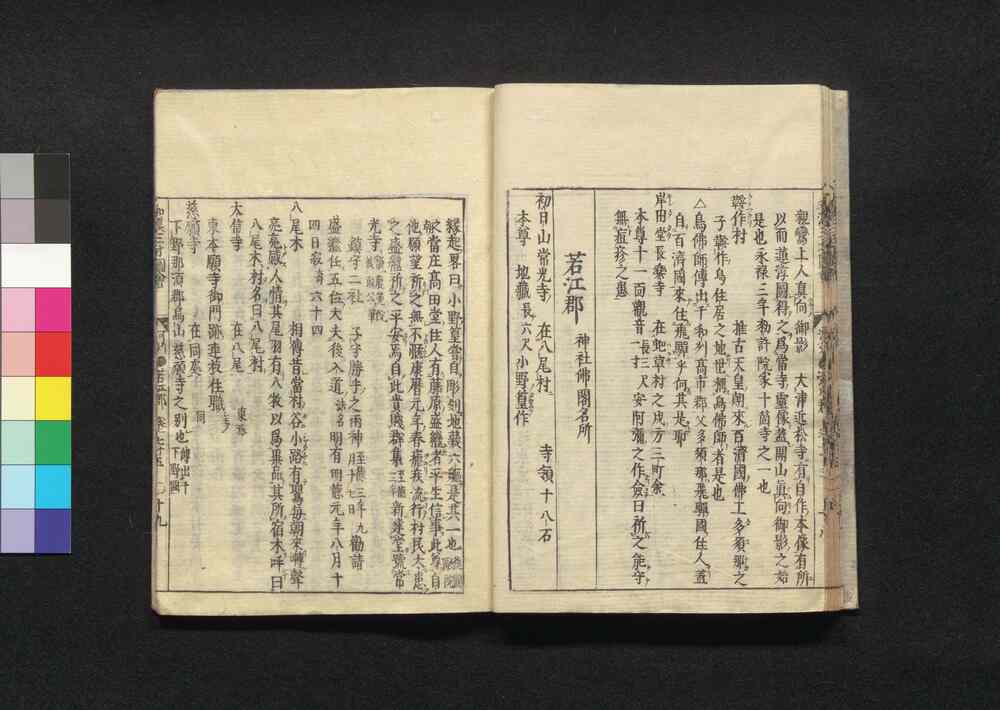 親鸞上人真向御影　大津近松寺有自作本像有所
以而蓮淳圖得之為當寺靈像蓋開山真向御影之始
是也永禄三年勅許院家十箇寺之一也
鞍作村　推古天皇朝來百濟國佛工多須那之
子鞍作鳥住居之地世稱鳥佛師者是也
△鳥佛師傳出于和列高市郡父多須那飛驒國住人蓋
自百濟國來住飛驒乎何其是耶
岸田堂長樂寺　在蛇草村之戌方三町余
本尊十一面觀音長三尺一寸安阿彌之作僉曰祈之能守
無疱疹之患
若江郡　神社佛閣名所
初日山常光寺　在八尾村　寺領十八石
本尊　地藏長六尺小野篁作
縁起畧曰小野篁當自彫刻地藏六軀是其一也
當庄髙田堂住人有藤原盛繼者平生信事此尊自
他願望祈之無不應康暦元年春瘧疾流行村民大患
之盛繼祈之平安焉自此貴賤群集新建堂號常
光寺
鎮守二社　子守勝手之両神　三年九勸請
盛繼任五位大夫後入道明有明德元年八月十
四日寂壽六十四
八尾木　相傳昔當村谷小路有鶯毎朝來囀聲
亮亮感人情其尾羽有八數以爲異品其所宿木呼曰
八尾木村名曰八尾村
大信寺　在八尾　東
東本願寺御門跡連枝住職
慈願寺　在同處　同
下野那須郡烏山慈願寺之別也傳出于下野國
若江郡　卷七十五　〇十九